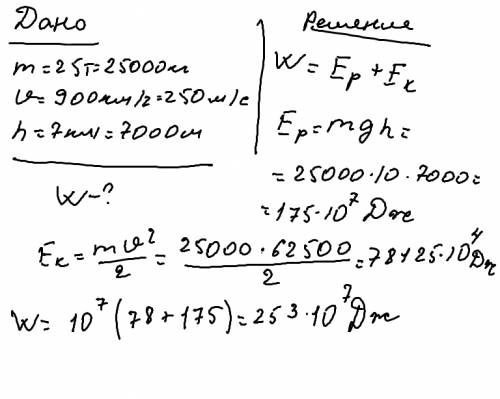 Дано
m=25т=25000кг
v=900км/г=250м/с
h=7км=7000м
W-?
Решение
W=Ep+Eк
Ep=mgh=
=25000·10·7000=
=175·10^7 Дж
Eк=mv^2/2=25000·62500/2=78125·10^4 Дж
W=10^7(78+175)=253·10^7 Дж